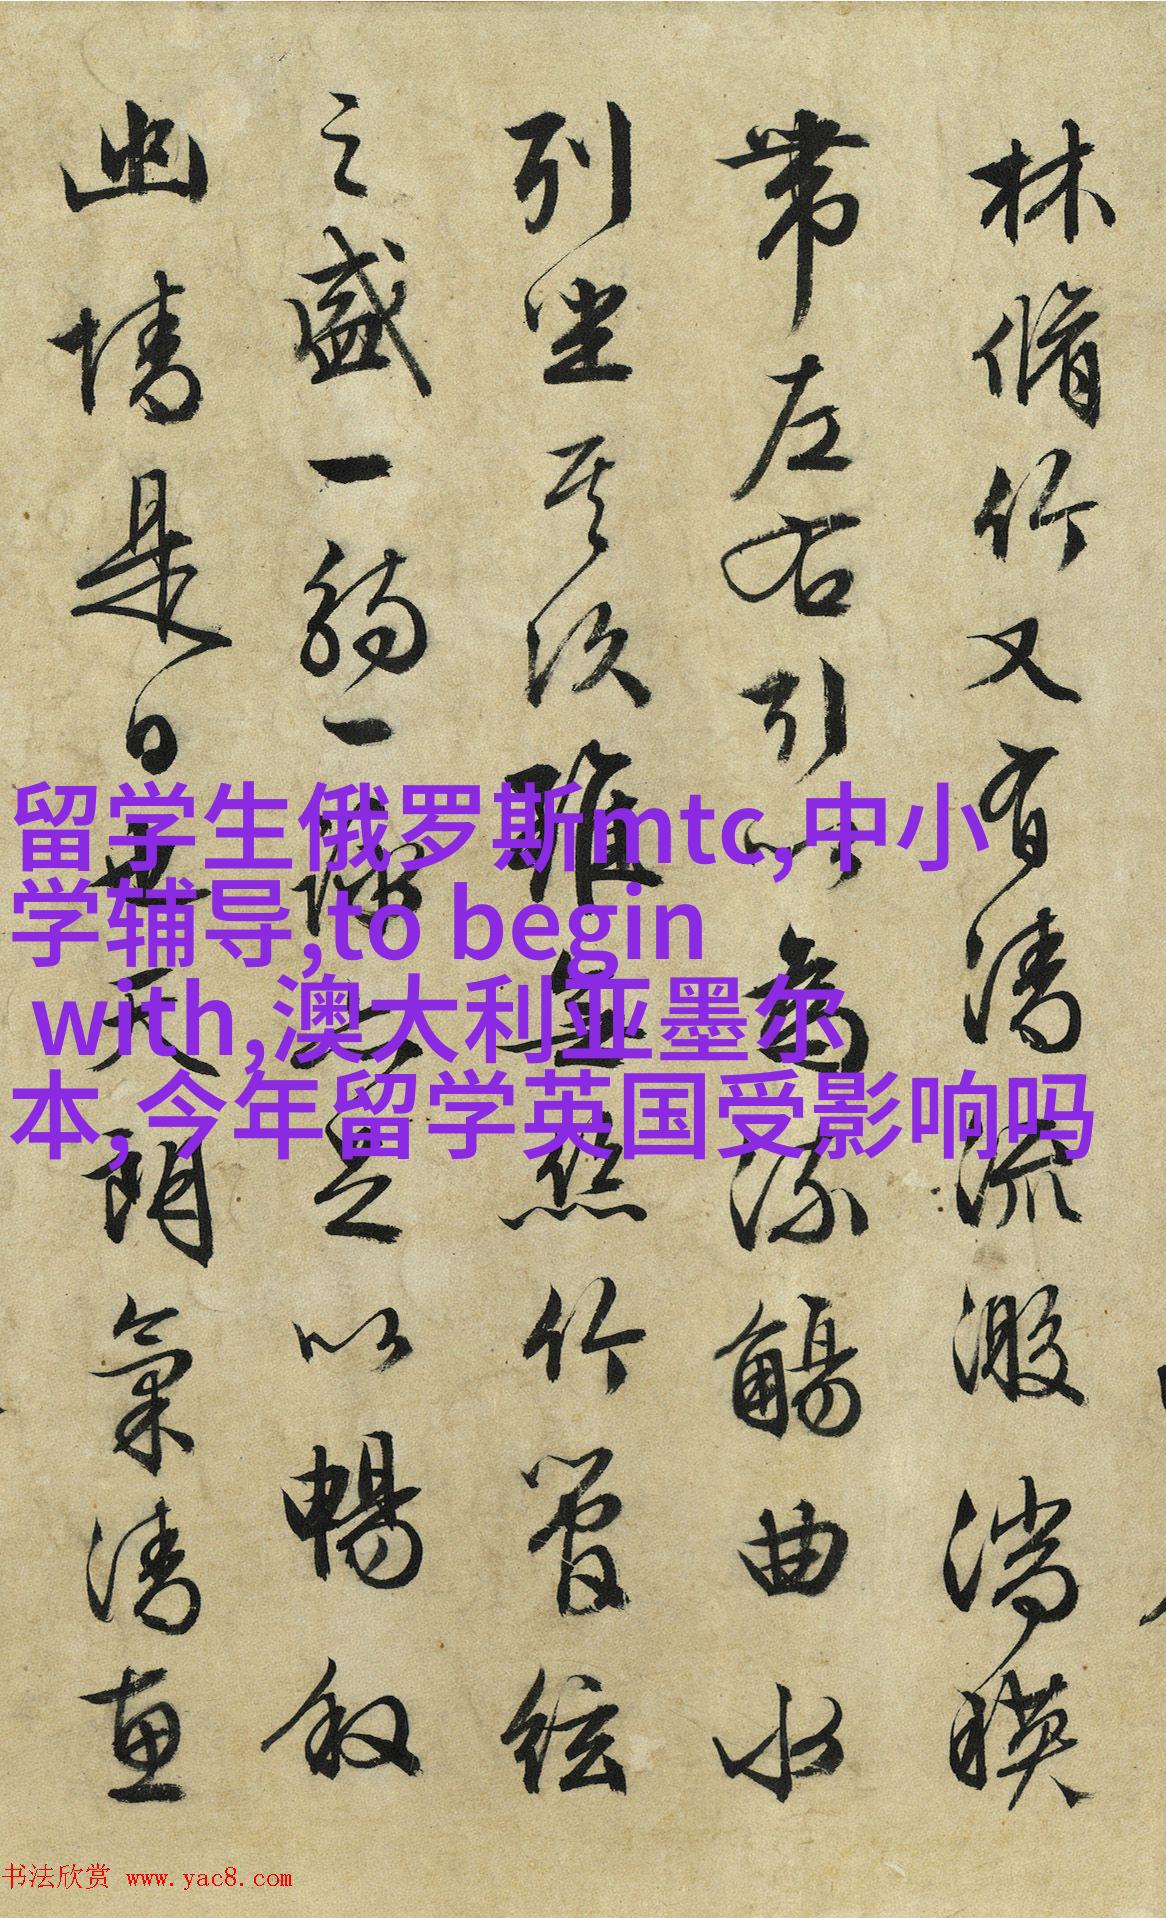 林脩竹又有清流激湍暎
帶左右引以為流觴曲水
列坐其次雖無絲竹管絃
之盛一觴一詠亦足以暢叙
幽情是日也天朗氣清惠
留学生俄罗斯mtc,中小
学辅导,to begin
with,澳大利亚墨尔
本,今年留学英国受影响吗
书法欣赏 www.yac8.com